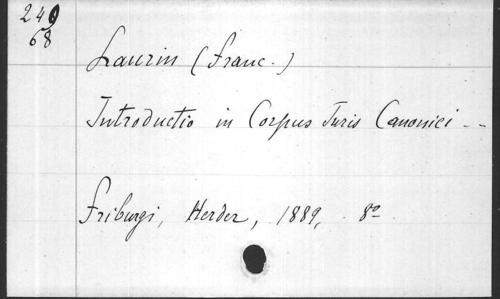 249
68
Laurin (Franc.)
Introductio in Corpus Juris Canonici --
Friburgi, Herder, 1889, 8º